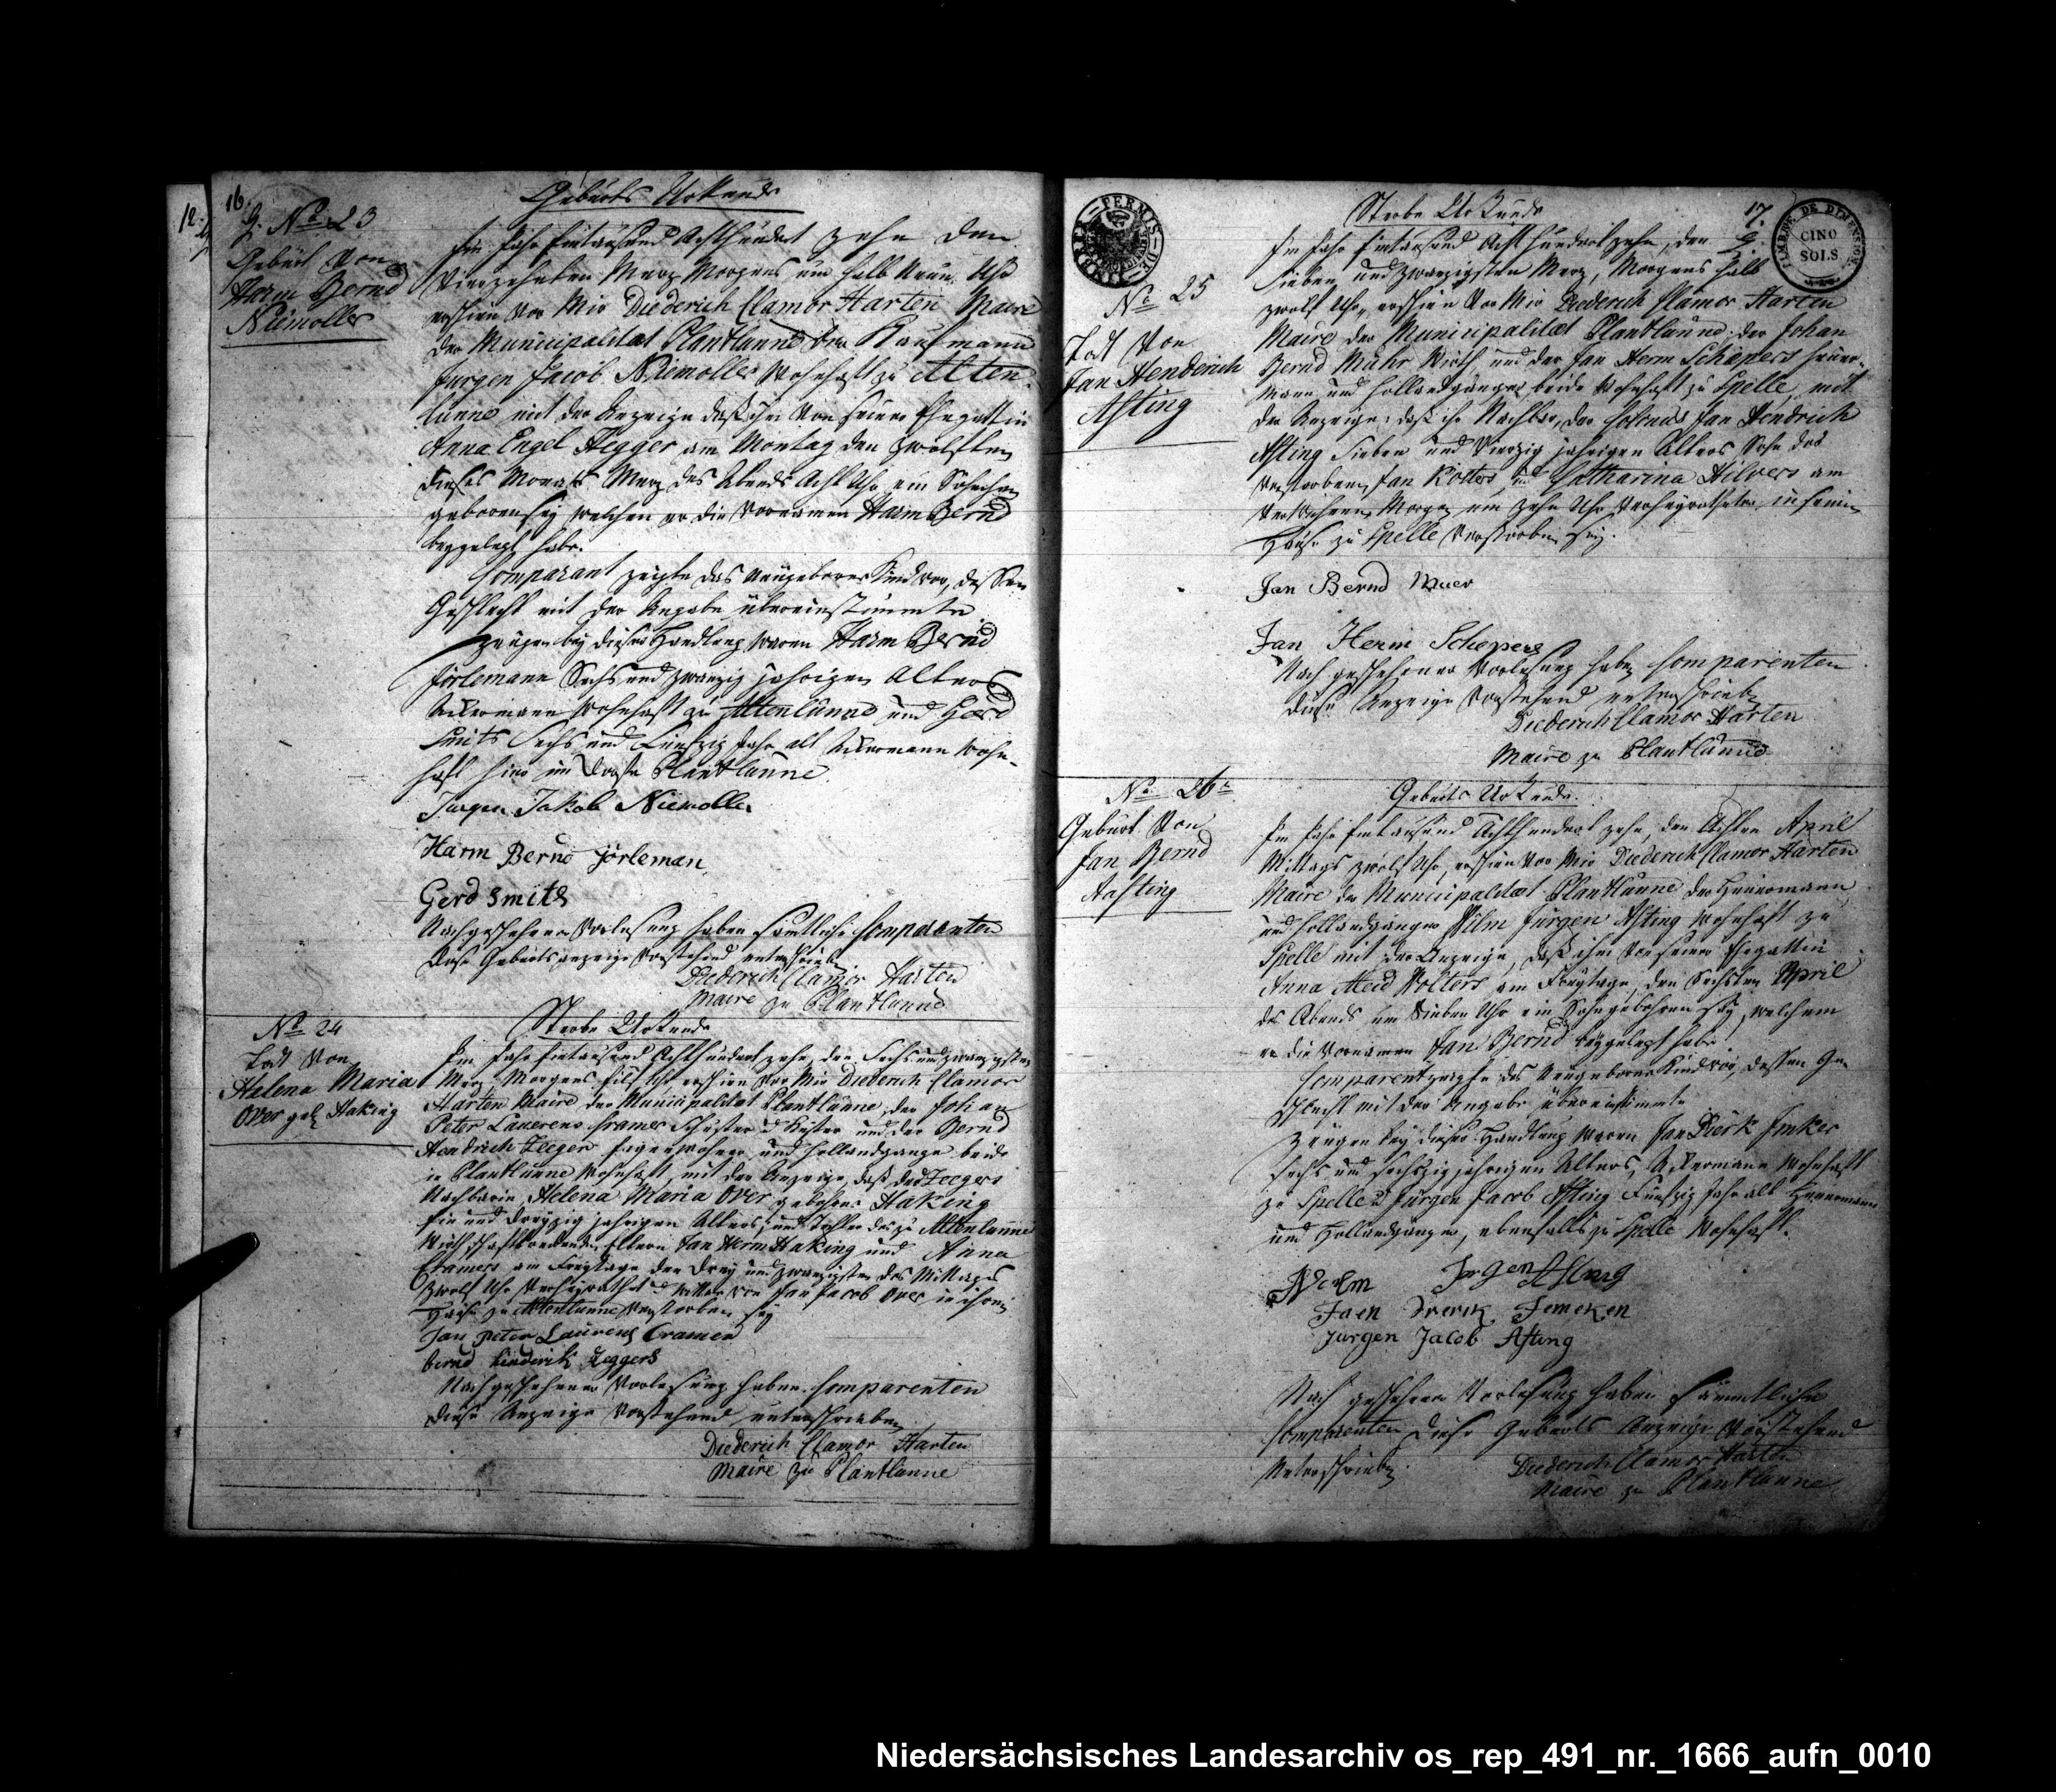 16.
12.
Geburts Urkunde
No 23
Geburt von
Harm Bernd
Niemoller
Im Jahr Eintausend Achthundert zehn den
vierzehnten Merz Morgens um halb neun Uhr
erschien vor Mir Diederich Clamor Harten Maire
der Municipalitat Plantlünne der Kaufmann
Jurgen Jacob Niemoller wohnhaft zu Alten-
lünne mit der Anzeige daß ihm von seiner Ehegattin
Anna Engel Hegger am Montag den zwolften
dieses Monats Merz des Abends Acht Uhr ein Sohnchen
gebohren sey welchen er die Vornamen Harm Bernd
beygelegt habe.
Comparant zeigte das neugeborne Kind vor, dessen
Geschlecht mit der Angabe übereinstimmte
Zeugen bey dieser Handlung waren Harm Bernd
Jörlemann Sechs und zwanzig jahrigen Alters
Ackermann wohnhaft zu Altenlünne und Gerd
Smits Sechs und Funfzig Jahr alt Ackermann wohn-
haft hier im Dorfe Plantlünne.
Jurgen Jakob Niemoller
Harm Bernd Jörleman
Gerd Smits
Nach geschehener Vorlesung haben samtliche Comparenten
diese Geburtsanzeige vorstehend unterschrieben
Diederich Clamor Harten
Maire zu Plantlunne
No 24
Tod von
Helena Maria
Over geb Haking
Sterbe Urkunde
Im Jahr Eintausend Achthundert zehn, den Sechs und zwanzigsten
Merz, Morgens Eilf Uhr erschien vor Mir Diederich Clamor
Harten Maire der Municipalitat Plantlünne, der Johan
Peter Laurens Cramer Schuster u Küster und der Bernd
Hendrich Zegger und Hollandganger beide
in Plantlünne wohnhaft, mit der Anzeige, daß des Zeggers
Nachbarin Helena Maria Over gebohrne Haking
Ein und dreyzig jahrigen Alters, und Tochter der zu Altenlünne
Eltern Jan Herm Haking und Anna
Cramers am Freytage den drey und zwanzigsten des Mittags
zwolf Uhr verheyrathet Jan Jacob Over in ihrem
Hause zu Altenlünne verstorben sey
Jan Peter Laurens Cramer
bernd hinderik Zeggers
Nach geschehener Vorlesung haben Comparenten
diese Anzeige vorstehend unterschrieben
Diederich Clamor Harten
Maire zu Plantlunne
17.
TIMBRE DE DIMENSION
CINQ
SOLS
Sterbe Urkunde
No 25
Tod von
Jan Henderich
Asting
Im Jahr Eintausend Acht hundert zehn, den
Sieben und zwanzigsten Merz, Morgens halb
zwolf Uhr, erschien vor Mir Diederich Clamor Harten
Maire der Municipalitæt Plantlünne der Johan
Bernd Muhr Wirth und der Jan Herm Schepers Heuer-
mann und Hollandgänger beide wohnhaft zu Spelle, mit
der Anzeige, daß ihr Nachbar, der Colonus Jan Hendrich
Asting Sieben und Vierzig jahrigen Alters Sohn des
verstorbenen Jan Kolters und Catharina Hilvers am
Morgen um zehn Uhr verheyratheten, in seinem
Hause zu Spelle verstorben sey.
Jan Bernd Muer
Jan Herm Schepers
Nach geschehener Vorlesung haben Comparenten
diese Anzeige vorstehend unterschrieben
Diederich Clamor Harten
Maire zu Plantlünne
No 26
Geburt von
Jan Bernd
Aasting
Geburts Urkunde.
Im Jahr Eintausend Achthundert zehn, den Achten April
Mittags zwolf Uhr, erschien vor Mir Diederich Clamor Harten
Maire der Municipalitæt Plantlünne der Heuermann
und Hollandgänger Wilm Jürgen Asting wohnhaft zu
Spelle mit der Anzeige, daß ihm von seiner Ehegattin
Anna Aleid Wolters am Freytage, den Sechsten April
des Abends um Sieben Uhr ein Sohn gebohren sey, welchem
er die Vornamen Jan Bernd beygelegt habe.
Comparent zeigte das neugeborne Kind vor, dessen Ge-
schlecht mit der Angabe übereinstimmte
Zeugen bey dieser Handlung waren Jan Dierk Imker
sechs und sechszig jahrigen Alters, Ackermann wohnhaft
zu Spelle u Jürgen Jacob Asting Funfzig Jahr alt Heuermann
und Hollandgänger, ebenfalls zu Spelle wohnhaft.
Welm Jorgen Asting
Jaen Dierik Jemeken
Jurgen Jacob Asting
Nach geschehener Vorlesung haben sämmtliche
Comparenten diese Geburts Anzeige vorstehend
unterschrieben.
Diederich Clamor Harten
Maire zu Plantlunne
Niedersächsisches Landesarchiv os_rep_491_nr._1666_aufn_0010